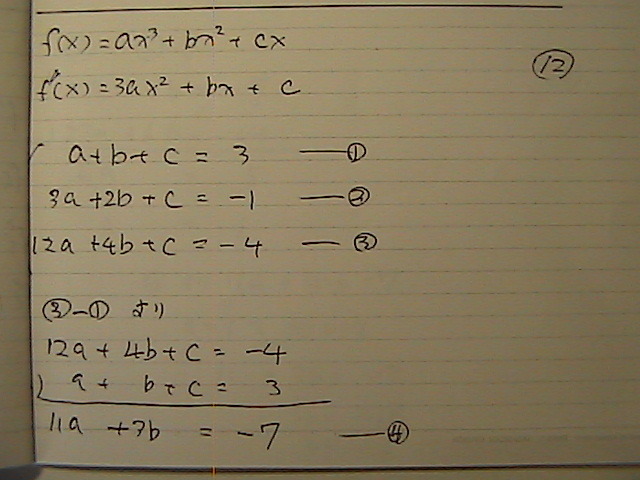 f(x)=ax³+bx²+cx
⑫
f'(x)=3ax²+bx+c
a+b+c=3 ——①
3a+2b+c=-1 ——②
12a+4b+c=-4 ——③
③-①より
12a+4b+c=-4
) a+b+c=3
11a+3b=-7 ——④